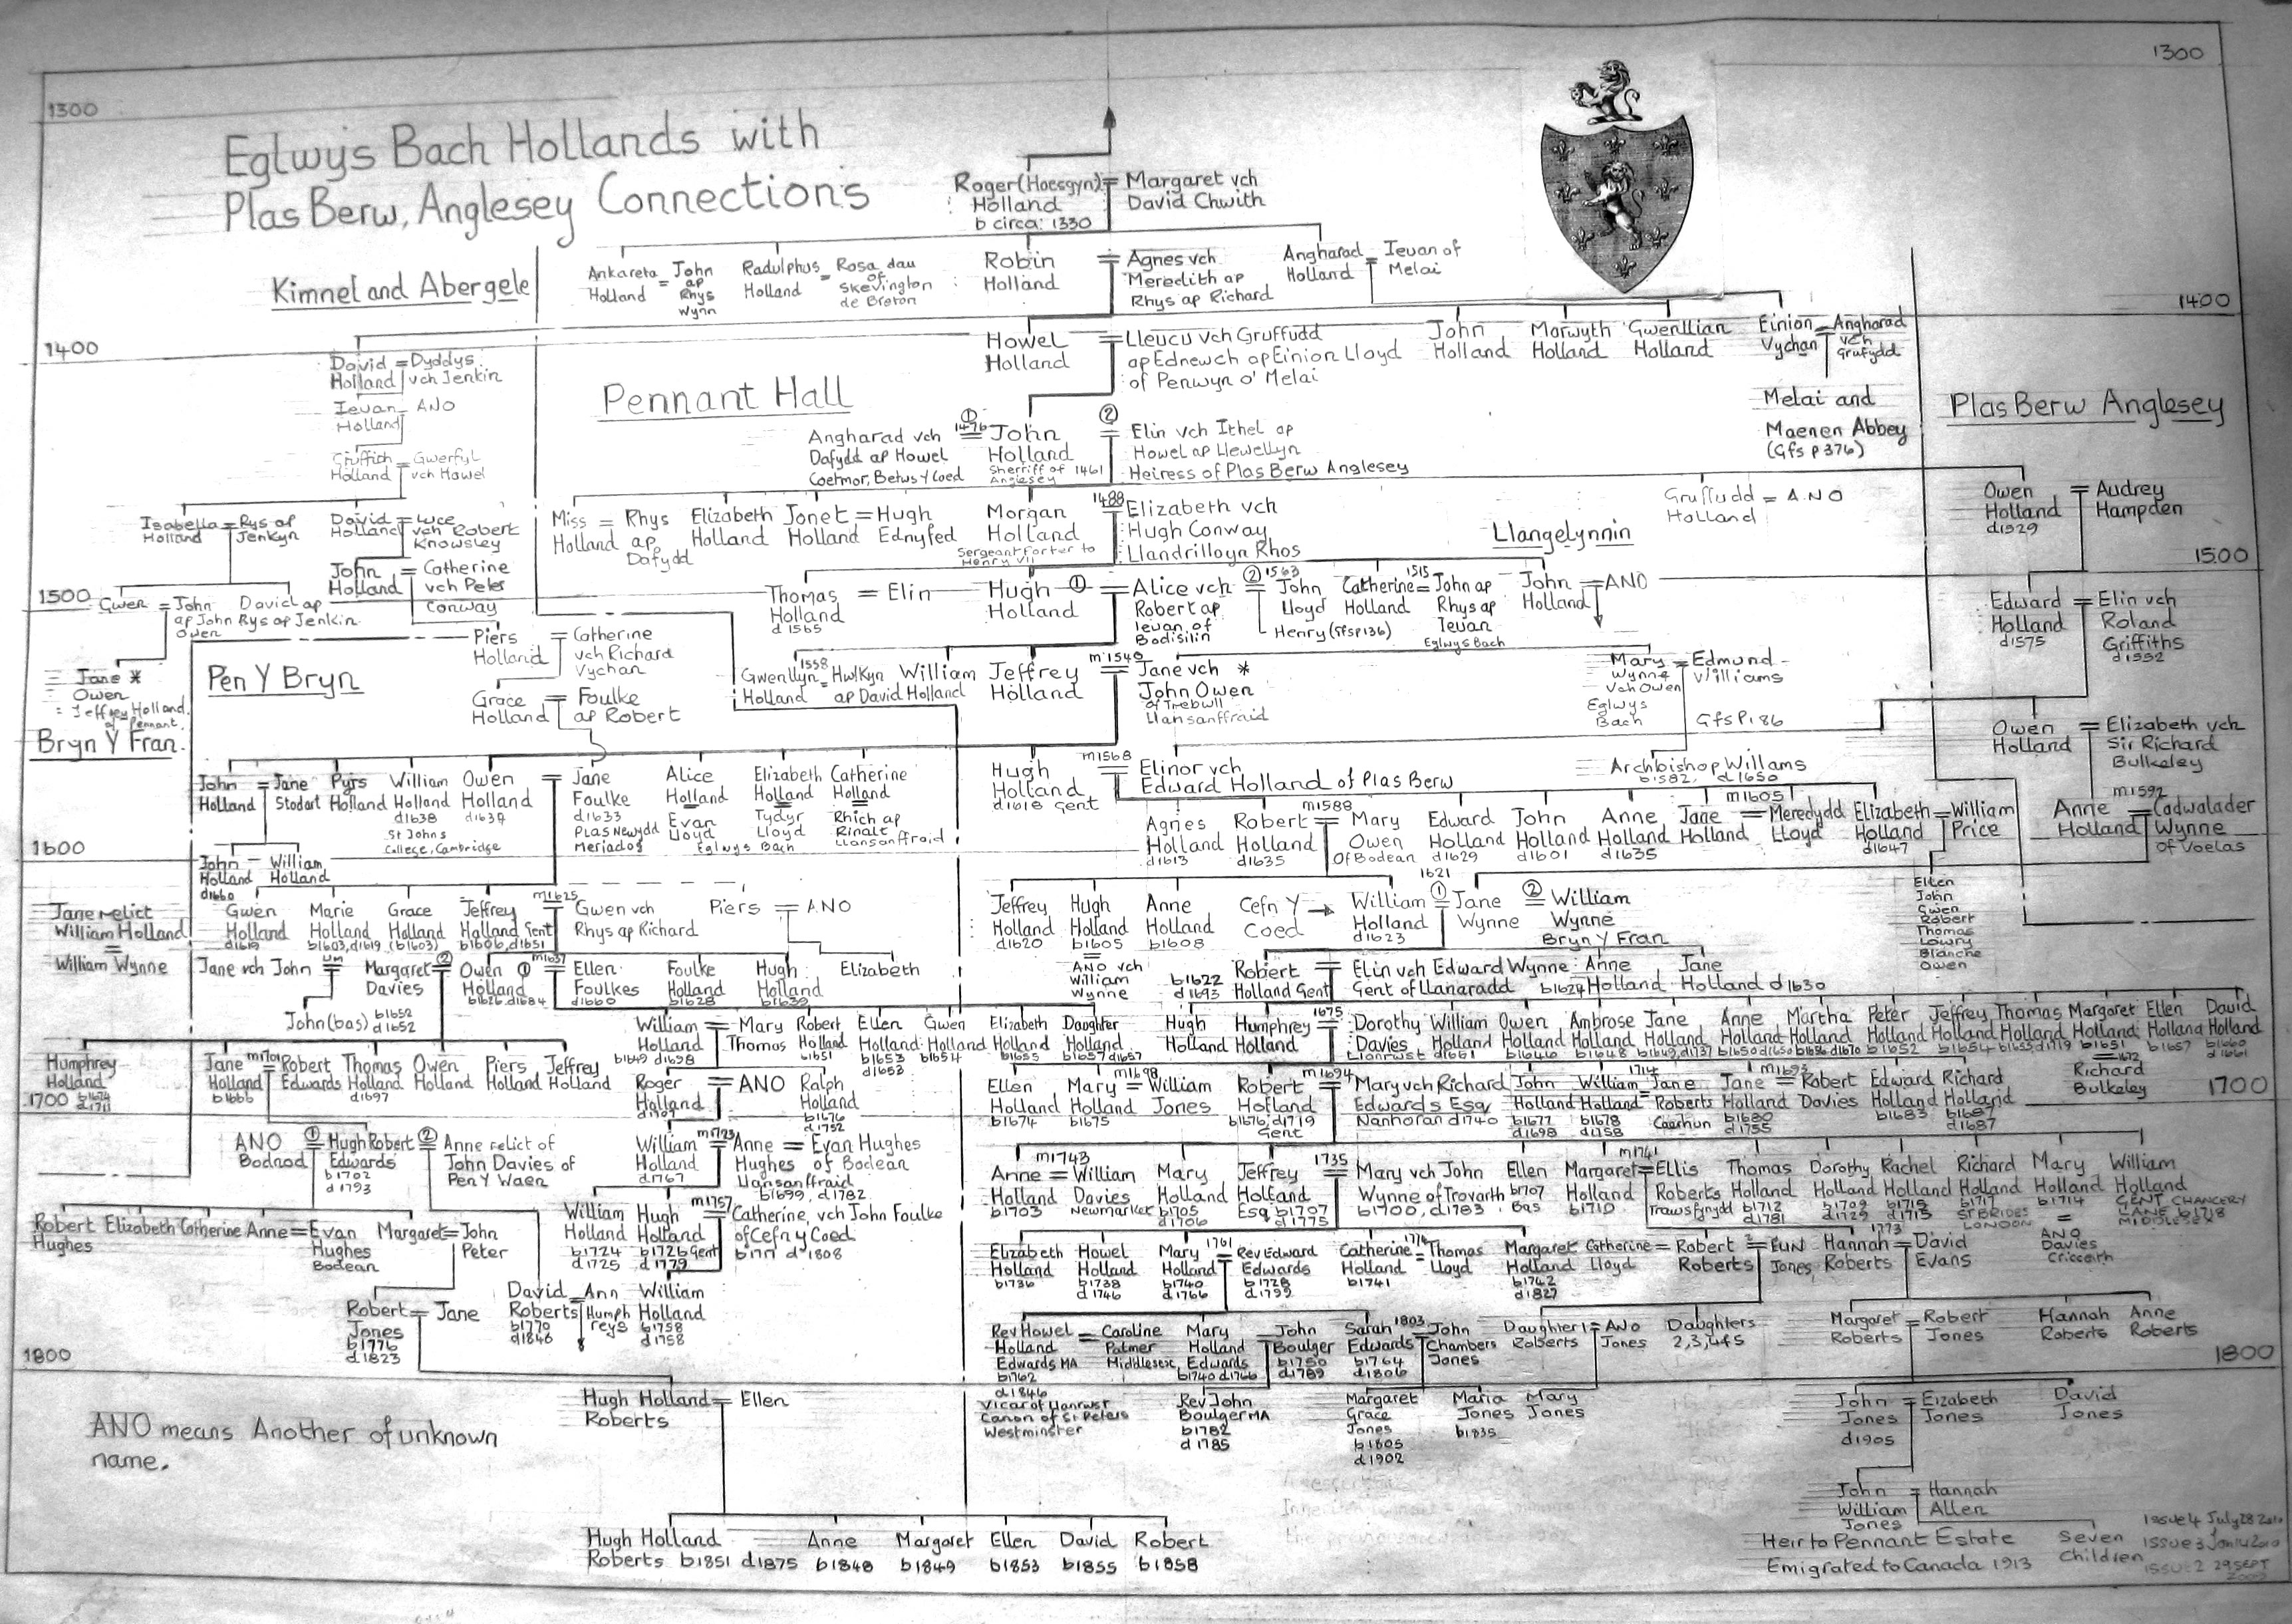 1300
1300
Eglwys Bach Hollands with
Plas Berw, Anglesey Connections
Roger (Hoesgyn) = Margaret vch
Holland David Chwith
b circa: 1330
Kimnel and Abergele
Ankareta = John
Holland ap
Rhys
Wynn
Radulphus = Rosa dau
Holland of
Skevington
de Breton
Robin = Agnes vch
Holland Meredith ap
Rhys ap Richard
Angharad = Ievan of
Holland Melai
1400
1400
David = Dyddys
Holland vch Jenkin
Howel = Lleucu vch Gruffudd
Holland ap Ednewch ap Einion Lloyd
of Penwyn o' Melai
John
Holland
Marwyth
Holland
Gwenllian
Holland
Einion = Angharad
Vychan vch
Grufydd
Ievan = ANO
Holland
Pennant Hall
Melai and
Maenen Abbey
(Gfs P376)
Plas Berw Anglesey
Griffith = Gwerfyl
Holland vch Howel
Angharad vch
Dafydd ap Howel
Coetmor, Betws Y Coed
① 1476
John
Holland
Sherriff of 1461
Anglesey
②
Elin vch Ithel ap
Howel ap Llewellyn
Heiress of Plas Berw Anglesey
Isabella = Rys ap
Holland Jenkyn
David = Luce
Holland vch Robert
Knowsley
Miss = Rhys
Holland ap
Dafydd
Elizabeth
Holland
Jonet = Hugh
Holland Ednyfed
Morgan
Holland
Sergeant Porter to
Henry VII
1488
Elizabeth vch
Hugh Conway
Llandrilloyn Rhos
Gruffudd = A.NO
Holland
Owen = Audrey
Holland Hampden
d1529
Llangelynnin
1500
1500
John = Catherine
Holland vch Peter
Conway
Gwen = John
ap John
Owen
David ap
Rys ap Jenkin
Thomas = Elin
Holland
d 1565
Hugh ① = Alice vch
Holland Robert ap
Ievan of
Bodisilin
② 1563
John
Lloyd
Henry (Gfs p136)
1515
Catherine = John ap
Holland Rhys ap
Ievan
Eglwys Bach
John = ANO
Holland
Edward = Elin vch
Holland Roland
d1575 Griffiths
d1552
Piers = Catherine
Holland vch Richard
Vychan
Pen Y Bryn
Jane *
Owen
= Jeffrey Holland
of Pennant
Bryn Y Fran
Grace = Foulke
Holland ap Robert
1558
Gwenllyn = Hwlkyn
Holland ap David
William
Holland
Jeffrey
Holland
m 1540
Jane vch *
John Owen
of Trebwll
Llansanffraid
Mary = Edmund
Wynne Williams
Vch Owen
Eglwys
Bach
Gfs P186
Owen = Elizabeth vch
Holland Sir Richard
Bulkeley
John = Jane
Holland Stodart
Pyrs
Holland
William
Holland
d1638
St Johns
College, Cambridge
Owen
Holland
d1639
Jane
Foulke
d1633
Plas Newydd
Meriadog
Alice
Holland
Evan
Lloyd
Elizabeth
Holland
Tydyr
Lloyd
Eglwys Bach
Catherine
Holland
Rhich ap
Rinalt
Llansanffraid
Hugh
Holland
d1618 Gent
m1568
Elinor vch
Edward Holland of Plas Berw
Archbishop Willams
b1582, d1650
1600
Agnes
Holland
d1613
Robert
Holland
d1635
m1588
Mary
Owen
Of Bodean
Edward
Holland
d1629
John
Holland
d1601
Anne
Holland
d1635
m1605
Jane = Meredydd
Holland Lloyd
Elizabeth = William
Holland Price
d1647
m1592
Anne = Cadwalader
Holland Wynne
of Voelas
John
Holland
d1660
William
Holland
Jane relict
William Holland
=
William Wynne
Gwen
Holland
d1619
Marie
Holland
b1603, d1619
Grace
Holland
(b1603)
Jeffrey
Holland Gent
b1606, d1651
m1625
Gwen vch
Rhys ap Richard
Piers = ANO
Jeffrey
Holland
d1620
Hugh
Holland
b1605
=
ANO vch
William
Wynne
Anne
Holland
b1608
Cefn Y →
Coed
1621
William ① Jane
Holland Wynne
d1623
② William
Wynne
Bryn Y Fran
Ellen
John
Gwen
Robert
Thomas
Lowry
Blanche
Owen
Jane vch John
um
Margaret ②
Davies
Owen ①
Holland
b1626, d1684
m1657
Ellen
Foulkes
d1660
Foulke
Holland
b1628
Hugh
Holland
b1639
Elizabeth
John (bas) b1652
d1652
b1622
d1693
Robert
Holland Gent
Elin vch Edward Wynne
Gent of Llanaradd
Anne
b1624 Holland
Jane
Holland d1630
William = Mary
Holland Thomas
b1649 d1698
Robert
Holland
b1651
Ellen
Holland
b1653
d1653
Gwen
Holland
b1654
Elizabeth
Holland
b1655
Daughter
Holland
b1657 d1657
Hugh
Holland
Humphrey
Holland
1675
Dorothy
Davies
Llanrwst
William
Holland
d1661
Owen
Holland
b1646
Ambrose
Holland
b1648
Jane
Holland
b1649, d1737
Anne
Holland
b1650 d1650
Martha
Holland
b1656 d1670
Peter
Holland
b1652
Jeffrey
Holland
b1654
Thomas
Holland
b1655 d1719
Margaret
Holland
b1651
= 1672
Richard
Bulkeley
Ellen
Holland
b1657
David
Holland
b1660
d1661
Humphrey
Holland
b1674
d1711
1700
1700
Jane
Holland
b1666
m1701
Robert
Edwards
Thomas
Holland
d1697
Owen
Holland
Piers
Holland
Jeffrey
Holland
Roger = ANO
Holland
d1707
Ralph
Holland
b1676
d1752
Ellen
Holland
b1674
m1698
Mary = William
Holland Jones
b1675
Robert
Holland
b1676, d1719
Gent
m1694
Mary vch Richard
Edwards Esq
Nanhoran d1740
John
Holland
b1677
d1698
1714
William = Jane
Holland Roberts
b1678 Caerhun
d1758
m1693
Jane = Robert
Holland Davies
b1680
d1755
Edward
Holland
b1683
Richard
Holland
b1687
d1687
ANO ① Hugh Robert ② Anne relict of
Bodnod Edwards John Davies of
b1702 Pen Y Waen
d1793
William
Holland
d1767
m1723
Anne = Evan Hughes
Hughes of Bodean
Llansanffraid
b1699, d1782
m1743
Anne = William
Holland Davies
b1703 Newmarket
Mary
Holland
b1705
d1706
Jeffrey
Holland
Esq b1707
d1775
1735
Mary vch John
Wynne of Trovarth
b1700, d1783
Ellen
b1707
Bas
m1741
Margaret = Ellis
Holland Roberts
b1710 Trawsfynydd
Thomas
Holland
b1712
d1781
Dorothy
Holland
b1709
d1729
Rachel
Holland
b1715
d1715
Richard
Holland
b1717
ST BRIDES
LONDON
Mary
Holland
b1714
=
ANO
Davies
Criccieth
William
Holland
GENT CHANCERY
LANE b1718
MIDDLESEX
Robert
Hughes
Elizabeth
Catherine
Anne = Evan
Hughes
Bodean
Margaret = John
Peter
William
Holland
b1724
d1725
Hugh
Holland
b1726 Gent
d1779
m1757
Catherine, vch John Foulke
of Cefn y Coed
d 1808
Elizabeth
Holland
b1736
Howel
Holland
b1738
d1746
Mary
Holland
b1740
d1766
1761
Rev Edward
Edwards
b1728
d1799
Catherine = Thomas
Holland Lloyd
b1741
Margaret
Holland
b1742
d1827
Catherine = Robert = ELIN
Lloyd Roberts Jones
1773
Hannah = David
Roberts Evans
David = Ann
Roberts Humph
b1770 reys
d1846
William
Holland
b1758
d1758
Robert = Jane
Jones
b1776
d1823
Rev Howel = Caroline
Holland Palmer
Edwards MA Middlesex
b1762
d1846
Vicar of Llanrwst
Canon of St Peters
Westminster
Mary
Holland
Edwards
b1740 d1766
John
Boulger
b1750
d1789
1803
Sarah = John
Edwards Chambers
b1764 Jones
d1806
Daughter 1 = ANO
Roberts Jones
Daughters
2,3,4+5
Margaret = Robert
Roberts Jones
Hannah
Roberts
Anne
Roberts
1800
1800
Hugh Holland = Ellen
Roberts
Rev John
Boulger MA
b1782
d1785
Margaret
Grace
Jones
b1805
d1902
Maria
Jones
b1835
Mary
Jones
John = Elzabeth
Jones Jones
d1905
David
Jones
ANO means Another of unknown
name.
John = Hannah
William Allen
Jones
Heir to Pennant Estate
Emigrated to Canada 1913
Seven
Children
Issue 4 July 28 2010
ISSUE 3
ISSUE 2 29 SEPT
Hugh Holland
Roberts b1851 d1875
Anne
b1848
Margaret
b1849
Ellen
b1853
David
b1855
Robert
b1858